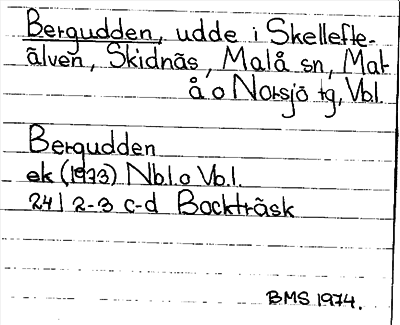 Bergudden, udde i Skellefte-
älven, Skidnäs, Malå sn, Mal-
å o Norsjö tg, Vbl.
Bergudden
ek (1973) Nbl.o Vb.l.
24 I 2-3 c-d Bockträsk
BMS 1974.